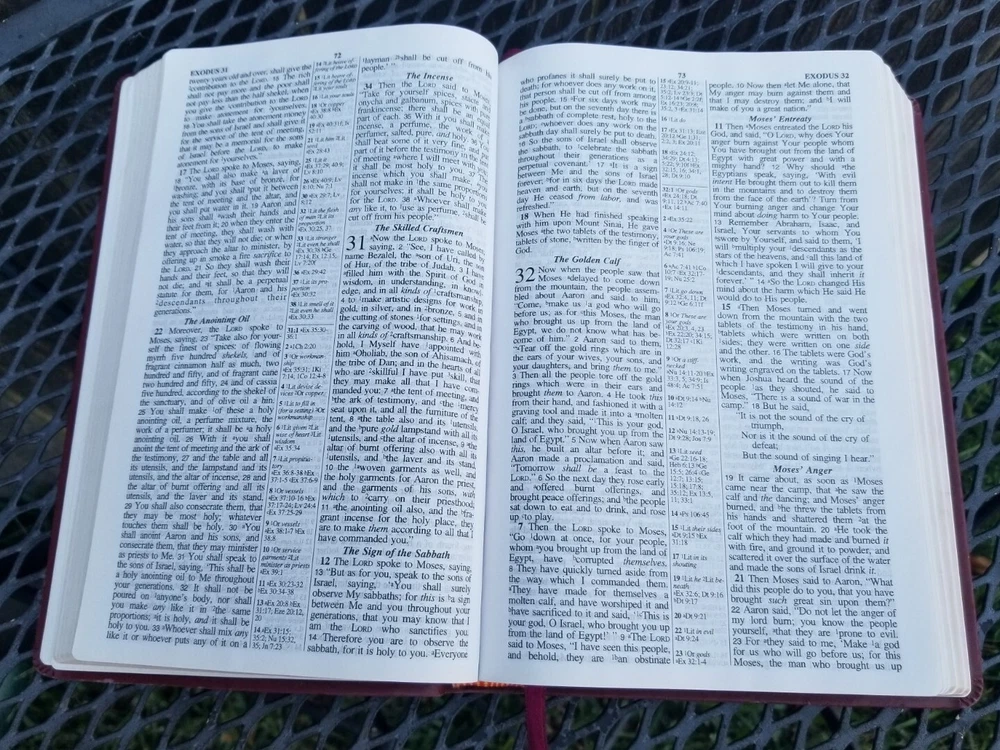 72
EXODUS 31
twenty years old and over, shall give the
contribution to the LORD. 15 The rich
shall not pay more and the poor shall
not pay less than the half shekel, when
you give the contribution to the LORD
to make atonement for yourselves.
16 You shall take the atonement money
from the sons of Israel and shall give it
for the service of the tent of meeting,
that it may be a memorial for the sons
of Israel before the LORD, to make
atonement for yourselves."
17 The LORD spoke to Moses, saying,
18 "You shall also make a laver of
bronze, with its base of bronze, for
washing; and you shall put it between
the tent of meeting and the altar, and
you shall put water in it. 19 Aaron and
his sons shall wash their hands and
their feet from it; 20 when they enter the
tent of meeting, they shall wash with
water, so that they will not die; or when
they approach the altar to minister, by
offering up in smoke a fire sacrifice to
the LORD. 21 So they shall wash their
hands and their feet, so that they will
not die; and it shall be a perpetual
statute for them, for Aaron and his
descendants throughout their
generations."
The Anointing Oil
22 Moreover, the LORD spoke to
Moses, saying, 23 "Take also for your-
self the finest of spices: of flowing
myrrh five hundred shekels, and of
fragrant cinnamon half as much, two
hundred and fifty, and of fragrant cane
two hundred and fifty, 24 and of cassia
five hundred, according to the shekel of
the sanctuary, and of olive oil a hin.
25 You shall make of these a holy
anointing oil, a perfume mixture, the
work of a perfumer; it shall be a holy
anointing oil. 26 With it you shall
anoint the tent of meeting and the ark of
the testimony, 27 and the table and all
its utensils, and the lampstand and its
utensils, and the altar of incense, 28 and
the altar of burnt offering and all its
utensils, and the laver and its stand.
29 You shall also consecrate them, that
they may be most holy; whatever
touches them shall be holy. 30 You
shall anoint Aaron and his sons, and
consecrate them, that they may minister
as priests to Me. 31 You shall speak to
the sons of Israel, saying, 'This shall be
a holy anointing oil to Me throughout
your generations. 32 It shall not be
poured on anyone's body, nor shall
you make any like it in the same
proportions; it is holy, and it shall be
holy to you. 33 Whoever shall mix any
like it or whoever puts any of it on a
layman shall be cut off from his
people.'"
The Incense
34 Then the LORD said to Moses,
"Take for yourself spices, stacte and
onycha and galbanum, spices with pure
frankincense; there shall be an equal
part of each. 35 With it you shall make
incense, a perfume, the work of a
perfumer, salted, pure, and holy. 36 You
shall beat some of it very fine, and put
part of it before the testimony in the tent
of meeting where I will meet with you;
it shall be most holy to you. 37 The
incense which you shall make, you
shall not make in the same proportions
for yourselves; it shall be holy to you
for the LORD. 38 Whoever shall make
any like it, to use as perfume, shall be
cut off from his people."
The Skilled Craftsmen
31 Now the LORD spoke to Moses,
saying, 2 "See, I have called by
name Bezalel, the son of Uri, the son
of Hur, of the tribe of Judah. 3 I have
filled him with the Spirit of God in
wisdom, in understanding, in knowl-
edge, and in all kinds of craftsmanship,
4 to make artistic designs for work in
gold, in silver, and in bronze, 5 and in
the cutting of stones for settings, and in
the carving of wood, that he may work
in all kinds of craftsmanship. 6 And be-
hold, I Myself have appointed with
him Oholiab, the son of Ahisamach, of
the tribe of Dan; and in the hearts of all
who are skillful I have put skill, that
they may make all that I have com-
manded you: 7 the tent of meeting, and
the ark of testimony, and the mercy
seat upon it, and all the furniture of the
tent, 8 the table also and its utensils,
and the pure gold lampstand with all its
utensils, and the altar of incense, 9 the
altar of burnt offering also with all its
utensils, and the laver and its stand,
10 the woven garments as well, and
the holy garments for Aaron the priest,
and the garments of his sons, with
which to carry on their priesthood;
11 the anointing oil also, and the fra-
grant incense for the holy place, they
are to make them according to all that I
have commanded you."
The Sign of the Sabbath
12 The LORD spoke to Moses, saying,
13 "But as for you, speak to the sons of
Israel, saying, 'You shall surely
observe My sabbaths; for this is a sign
between Me and you throughout your
generations, that you may know that I
am the LORD who sanctifies you.
14 Therefore you are to observe the
sabbath, for it is holy to you. Everyone
73
EXODUS 32
who profanes it shall surely be put to
death; for whoever does any work on it,
that person shall be cut off from among
his people. 15 For six days work may
be done, but on the seventh day there is
a sabbath of complete rest, holy to the
LORD; whoever does any work on the
sabbath day shall surely be put to death.
16 So the sons of Israel shall observe
the sabbath, to celebrate the sabbath
throughout their generations as a
perpetual covenant.' 17 It is a sign
between Me and the sons of Israel
forever; for in six days the LORD made
heaven and earth, but on the seventh
day He ceased from labor, and was
refreshed."
18 When He had finished speaking
with him upon Mount Sinai, He gave
Moses the two tablets of the testimony,
tablets of stone, written by the finger of
God.
The Golden Calf
32 Now when the people saw that
Moses delayed to come down
from the mountain, the people assem-
bled about Aaron and said to him,
"Come, make us a god who will go
before us; as for this Moses, the man
who brought us up from the land of
Egypt, we do not know what has be-
come of him." 2 Aaron said to them,
"Tear off the gold rings which are in
the ears of your wives, your sons, and
your daughters, and bring them to me."
3 Then all the people tore off the gold
rings which were in their ears and
brought them to Aaron. 4 He took this
from their hand, and fashioned it with a
graving tool and made it into a molten
calf; and they said, "This is your god,
O Israel, who brought you up from the
land of Egypt." 5 Now when Aaron saw
this, he built an altar before it; and
Aaron made a proclamation and said,
"Tomorrow shall be a feast to the
LORD." 6 So the next day they rose early
and offered burnt offerings, and
brought peace offerings; and the people
sat down to eat and to drink, and rose
up to play.
7 Then the LORD spoke to Moses,
"Go down at once, for your people,
whom you brought up from the land of
Egypt, have corrupted themselves.
8 They have quickly turned aside from
the way which I commanded them.
They have made for themselves a
molten calf, and have worshiped it and
have sacrificed to it and said, 'This is
your god, O Israel, who brought you up
from the land of Egypt!'" 9 The LORD
said to Moses, "I have seen this people,
and behold, they are an obstinate
people. 10 Now then let Me alone, that
My anger may burn against them and
that I may destroy them; and I will
make of you a great nation."
Moses' Entreaty
11 Then Moses entreated the LORD his
God, and said, "O LORD, why does Your
anger burn against Your people whom
You have brought out from the land of
Egypt with great power and with a
mighty hand? 12 Why should the
Egyptians speak, saying, 'With evil
intent He brought them out to kill them
in the mountains and to destroy them
from the face of the earth'? Turn from
Your burning anger and change Your
mind about doing harm to Your people.
13 Remember Abraham, Isaac, and
Israel, Your servants to whom You
swore by Yourself, and said to them, 'I
will multiply your descendants as the
stars of the heavens, and all this land of
which I have spoken I will give to your
descendants, and they shall inherit it
forever.'" 14 So the LORD changed His
mind about the harm which He said He
would do to His people.
15 Then Moses turned and went
down from the mountain with the two
tablets of the testimony in his hand,
tablets which were written on both
sides; they were written on one side
and the other. 16 The tablets were God's
work, and the writing was God's
writing engraved on the tablets. 17 Now
when Joshua heard the sound of the
people as they shouted, he said to
Moses, "There is a sound of war in the
camp." 18 But he said,
"It is not the sound of the cry of
triumph,
Nor is it the sound of the cry of
defeat;
But the sound of singing I hear."
Moses' Anger
19 It came about, as soon as Moses
came near the camp, that he saw the
calf and the dancing; and Moses' anger
burned, and he threw the tablets from
his hands and shattered them at the
foot of the mountain. 20 He took the
calf which they had made and burned it
with fire, and ground it to powder, and
scattered it over the surface of the water
and made the sons of Israel drink it.
21 Then Moses said to Aaron, "What
did this people do to you, that you have
brought such great sin upon them?"
22 Aaron said, "Do not let the anger of
my lord burn; you know the people
yourself, that they are prone to evil.
23 For they said to me, 'Make a god
for us who will go before us; for this
Moses, the man who brought us up